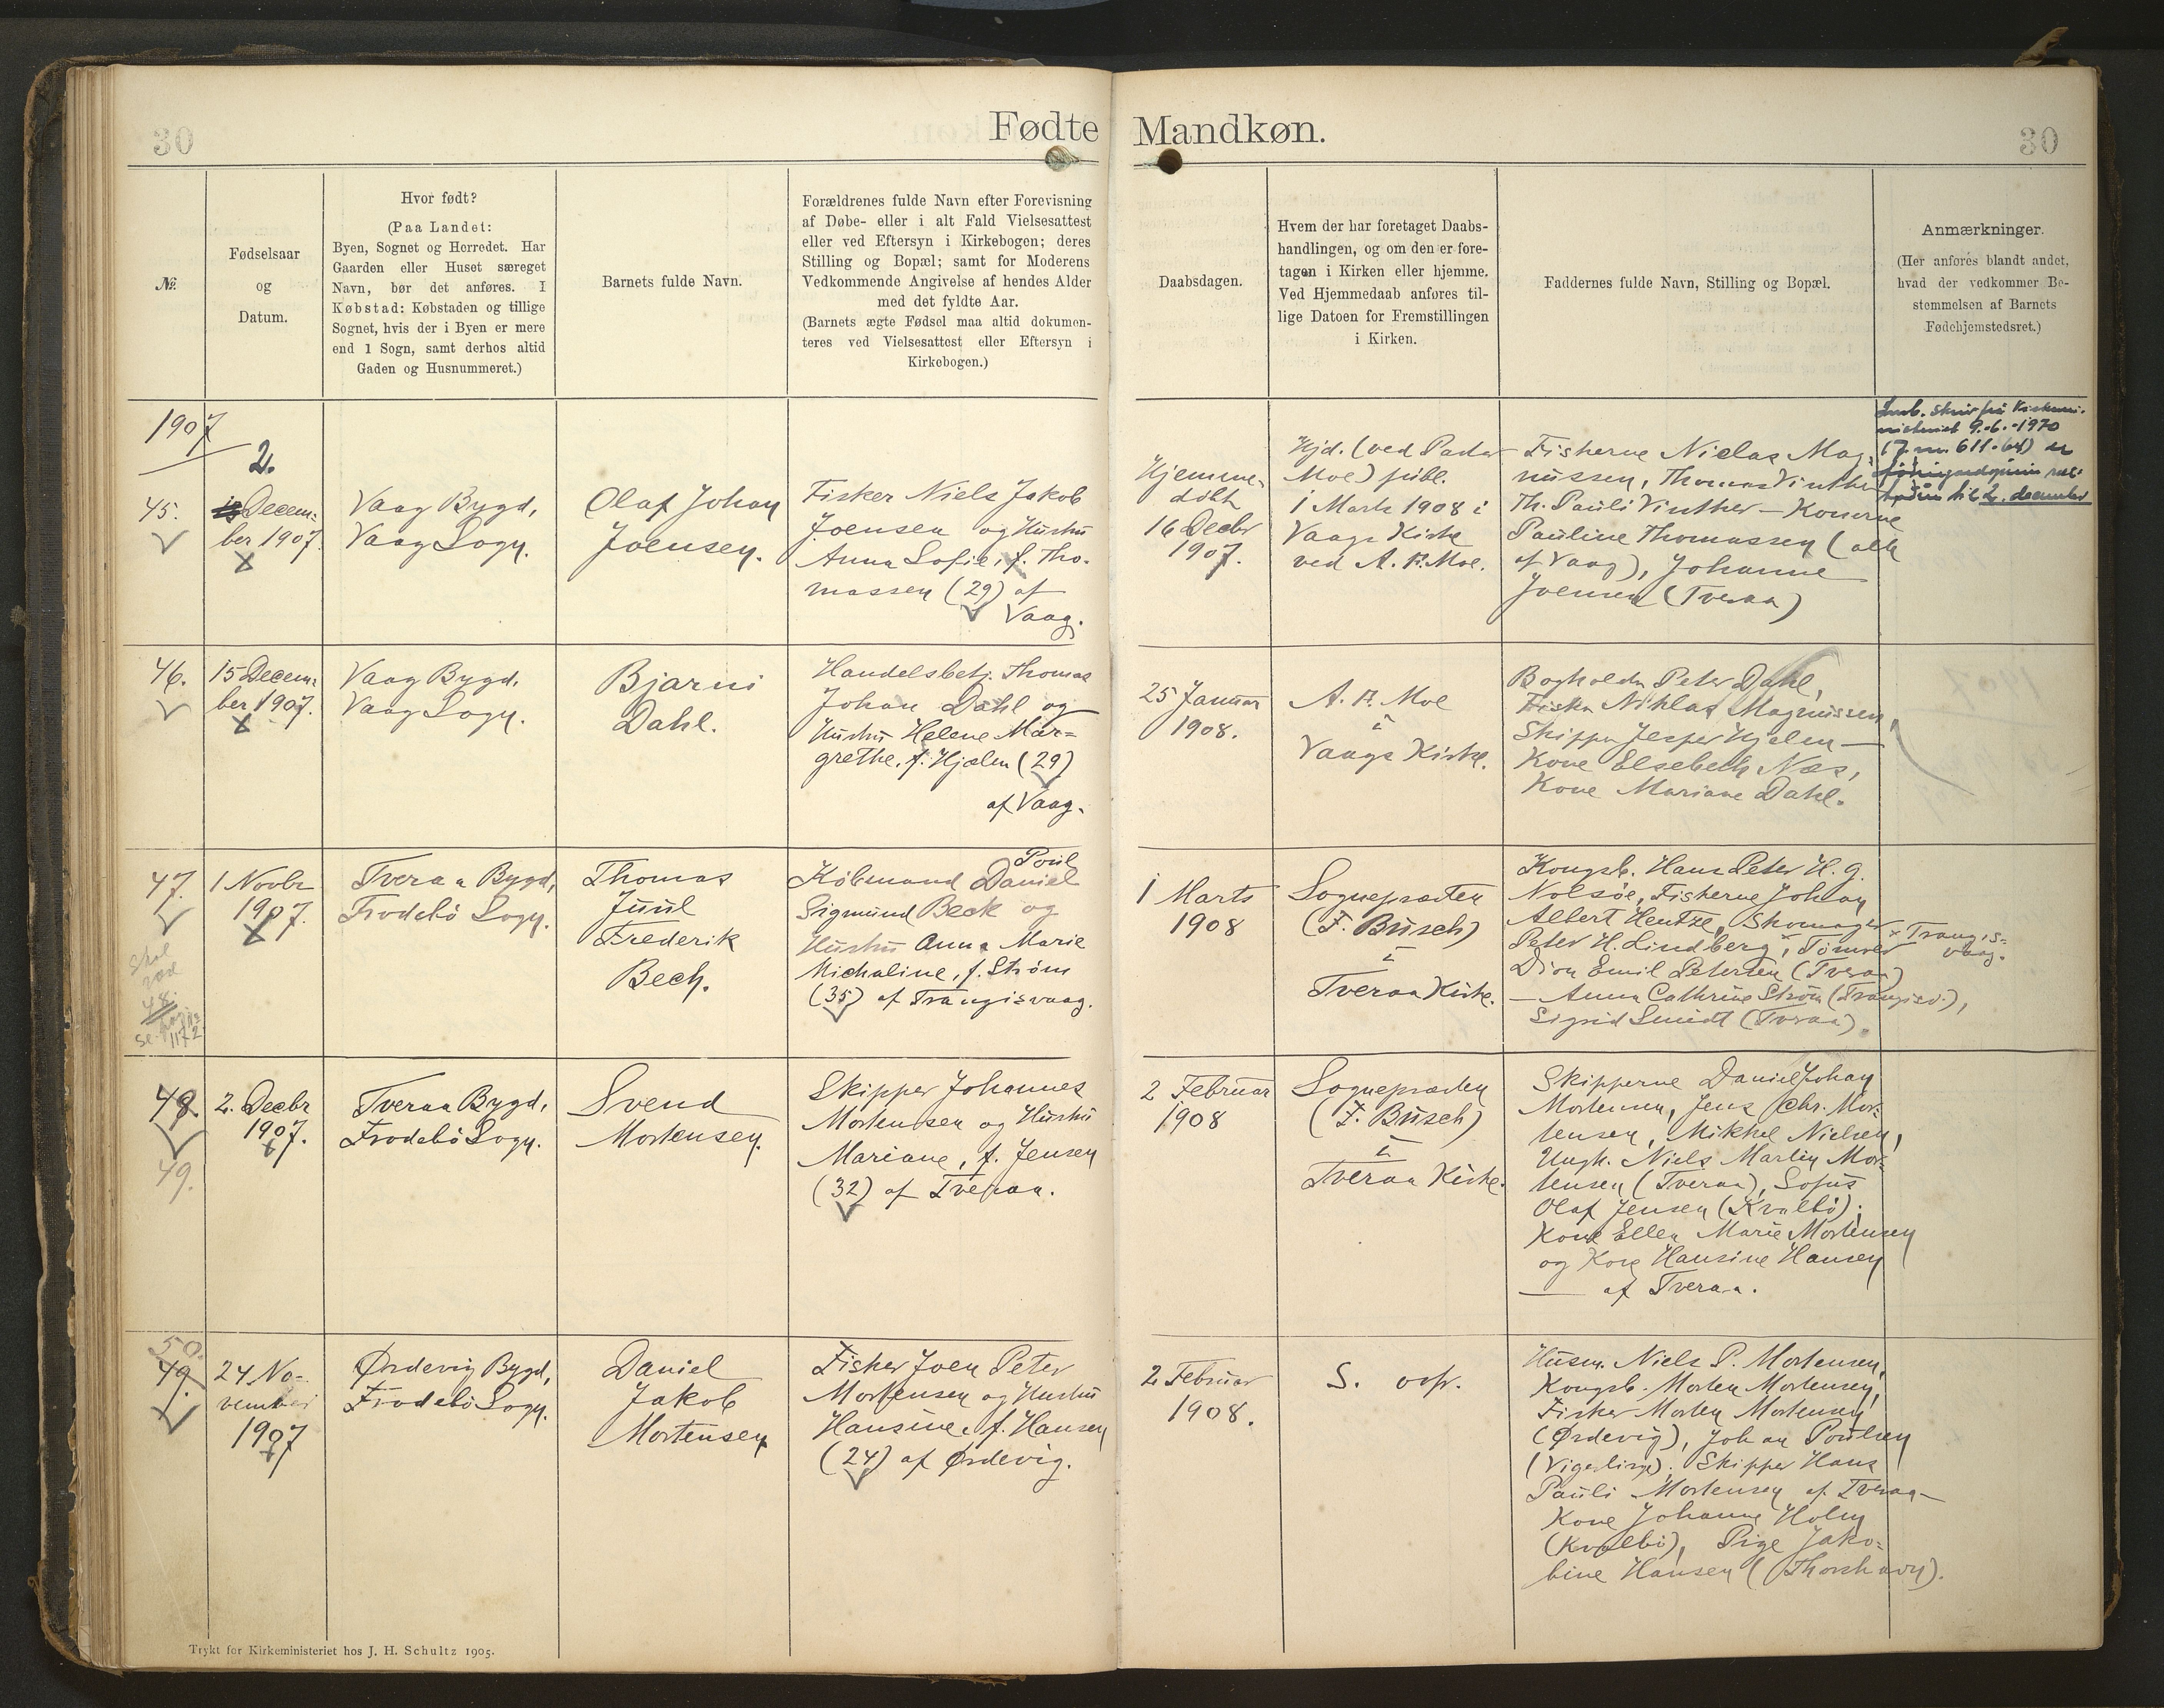 30
Fødte Mandkøn.
30
№
Fødselsaar
og
Datum.
Hvor født?
(Paa Landet:
Byen, Sognet og Herredet. Har
Gaarden eller Huset særeget
Navn, bør det anføres. I
Købstad: Købstaden og tillige
Sognet, hvis der i Byen er mere
end 1 Sogn, samt derhos altid
Gaden og Husnummeret.)
Barnets fulde Navn.
Forældrenes fulde Navn efter Forevisning
af Døbe- eller i alt Fald Vielsesattest
eller ved Eftersyn i Kirkebogen; deres
Stilling og Bopæl; samt for Moderens
Vedkommende Angivelse af hendes Alder
med det fyldte Aar.
(Barnets ægte Fødsel maa altid dokumen-
teres ved Vielsesattest eller Eftersyn i
Kirkebogen.)
Daabsdagen.
Hvem der har foretaget Daabs-
handlingen, og om den er fore-
tagen i Kirken eller hjemme.
Ved Hjemmedaab anføres til-
lige Datoen for Fremstillingen
i Kirken.
Faddernes fulde Navn, Stilling og Bopæl.
Anmærkninger.
(Her anføres blandt andet,
hvad der vedkommer Be-
stemmelsen af Barnets
Fødehjemstedsret.)
1907
45.
2.
Decem-
ber 1907.
Vaag Bygd,
Vaag Sogn.
Olaf Johan
Joensen.
Fisker Niels Jakob
Joensen og Hustru
Anna Sofie, f. Tho-
massen (29) af
Vaag.
Hjemme-
døbt
16 Decbr
1907.
Hjd. (ved Pastor
Moe) publ.
1 Marts 1908 i
Vaags Kirke
ved A. P. Moe.
Fiskerne Niclas Mag-
nussen, Thomas Vinther
Th. Pauli Vinther — Konerne
Pauline Thomassen (alle
af Vaag), Johanne
Joensen (Tveraa)
9.-6.-1970
til 2. december
46.
15 Decem-
ber 1907.
Vaag Bygd,
Vaag Sogn.
Bjarni
Dahl.
Handelsbetj. Thomas
Johan Dahl og
Hustru Helene Mar-
grethe, f. Hjelm (29)
af Vaag.
25 Januar
1908.
A. P. Moe
i
Vaags Kirke.
Bogholder Peter Dahl,
Fisker Niklas Magnussen,
Skipper Jesper Hjelm —
Kone Elsebeth Næs,
Kone Mariane Dahl.
47.
Skal
være
48.
se pag.
1172
1 Novbr
1907.
Tveraa Bygd,
Frodebö Sogn.
Thomas
Juul
Frederik
Bech.
Poul
Köbmand Daniel
Sigmund Beck og
Hustru Anna Marie
Michaline, f. Ström
(35) af Trangisvaag.
1 Marts
1908
Sognepræsten
(F. Busch)
i
Tveraa Kirke.
Kongsb. Hans Peter H. G.
Nolsöe, Fiskerne Johan
Albert Hentze, Skomager
Peter H. Lindberg, Tömrer
Dion Emil Petersen (Tveraa)
— Anna Cathrine Ström (Trangisv.),
Sigrid Smidt (Tveraa).
× Trangis-
vaag.
48.
49.
2. Decbr
1907.
Tveraa Bygd,
Frodebö Sogn.
Svend
Mortensen.
Skipper Johannes
Mortensen og Hustru
Mariane, f. Jensen
(32) af Tveraa.
2 Februar
1908
Sognepræsten
(F. Busch)
i
Tveraa Kirke.
Skipperne Daniel Johan
Mortensen, Jens Chr. Mor-
tensen, Mikkel Nielsen,
Ungk. Niels Martin Mor-
tensen (Tveraa), Sofus
Olaf Jensen (Kvalbö);
Kone Ellen Marie Mortensen
og Kone Hansine Hansen
— af Tveraa.
50.
49.
24 No-
vember
1907
Ørdevig Bygd,
Frodebö Sogn.
Daniel
Jakob
Mortensen
Fisker Joen Peter
Mortensen og Hustru
Hansine, f. Hansen
(24) af Ørdevig.
2 Februar
1908.
S. ovf.
Husm. Niels P. Mortensen,
Kongsb. Morten Mortensen,
Fisker Morten Mortensen
(Ørdevig), Johan Poulsen
Skipper Hans
Pauli Mortensen af Tveraa —
Kone Johanne Holm
(Kvalbö), Pige Jako-
bine Hansen (Thorshavn).
Trykt for Kirkeministeriet hos J. H. Schultz 1905.